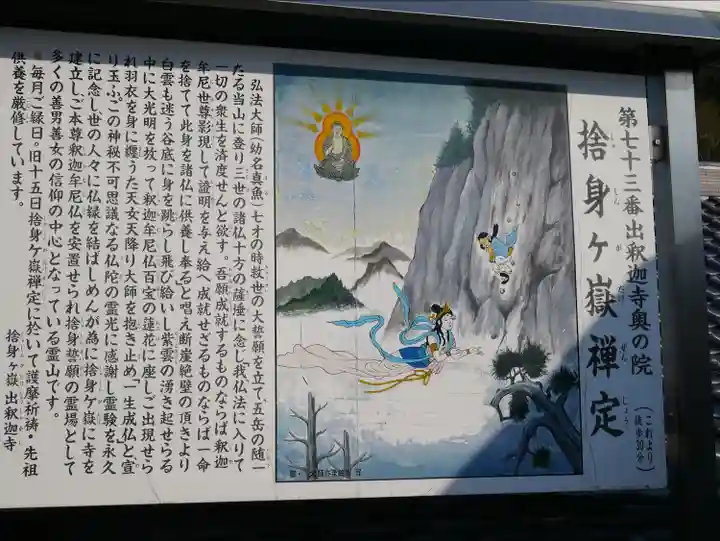 第七十三番出釈迦寺奥の院
捨身ヶ嶽禅定
しん が だけ ぜん じょう
(これより徒歩30分)
弘法大師(幼名真魚)七才の時救世の大誓願を立て五岳の随一
たる当山に登り三世の諸仏十方の薩埵に念じ我仏法に入りて
一切の衆生を済度せんと欲す。吾願成就するものならば釈迦
牟尼世尊影現して證明を与え給へ成就せざるものならば一命
を捨てて此身を諸仏に供養し奉ると唱え断崖絶壁の頂きより
白雲も迷う谷底に身を跳らし飛び給いし紫雲の湧き起せらる
中に大光明を放って釈迦牟尼仏百宝の蓮花に座しご出現せら
れ羽衣を身に纏うた天女天降り大師を抱き止め「一生成仏」と宣
り玉ふ。この神秘不可思議なる仏陀の霊光に感謝し霊験を永久
に記念し世の人々に仏縁を結ばしめんが為に捨身ヶ嶽に寺を
建立しご本尊釈迦牟尼仏を安置せられ捨身誓願の霊場として
多くの善男善女の信仰の中心となっている霊山です。
※毎月ご縁日。旧十五日捨身ヶ嶽禅定に於いて護摩祈祷・先祖
供養を厳修しています。
捨身ヶ嶽 出釈迦寺